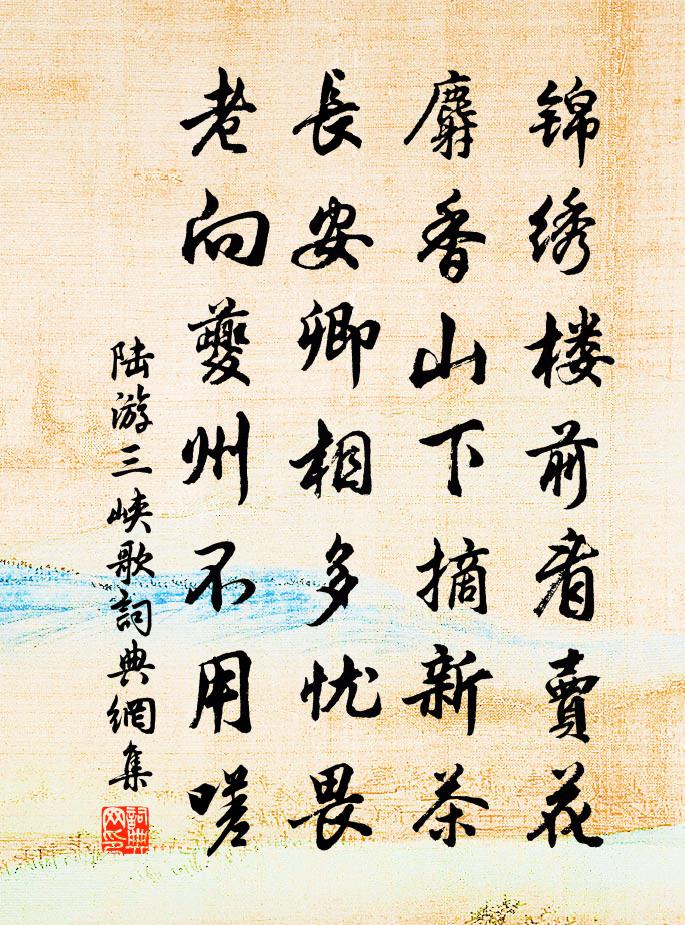 锦绣楼前看賣花
麝香山下摘新茶
長安卿相多忧畏
老向夔州不用嗟
陆游三峡歌詞典網集
詞典网印